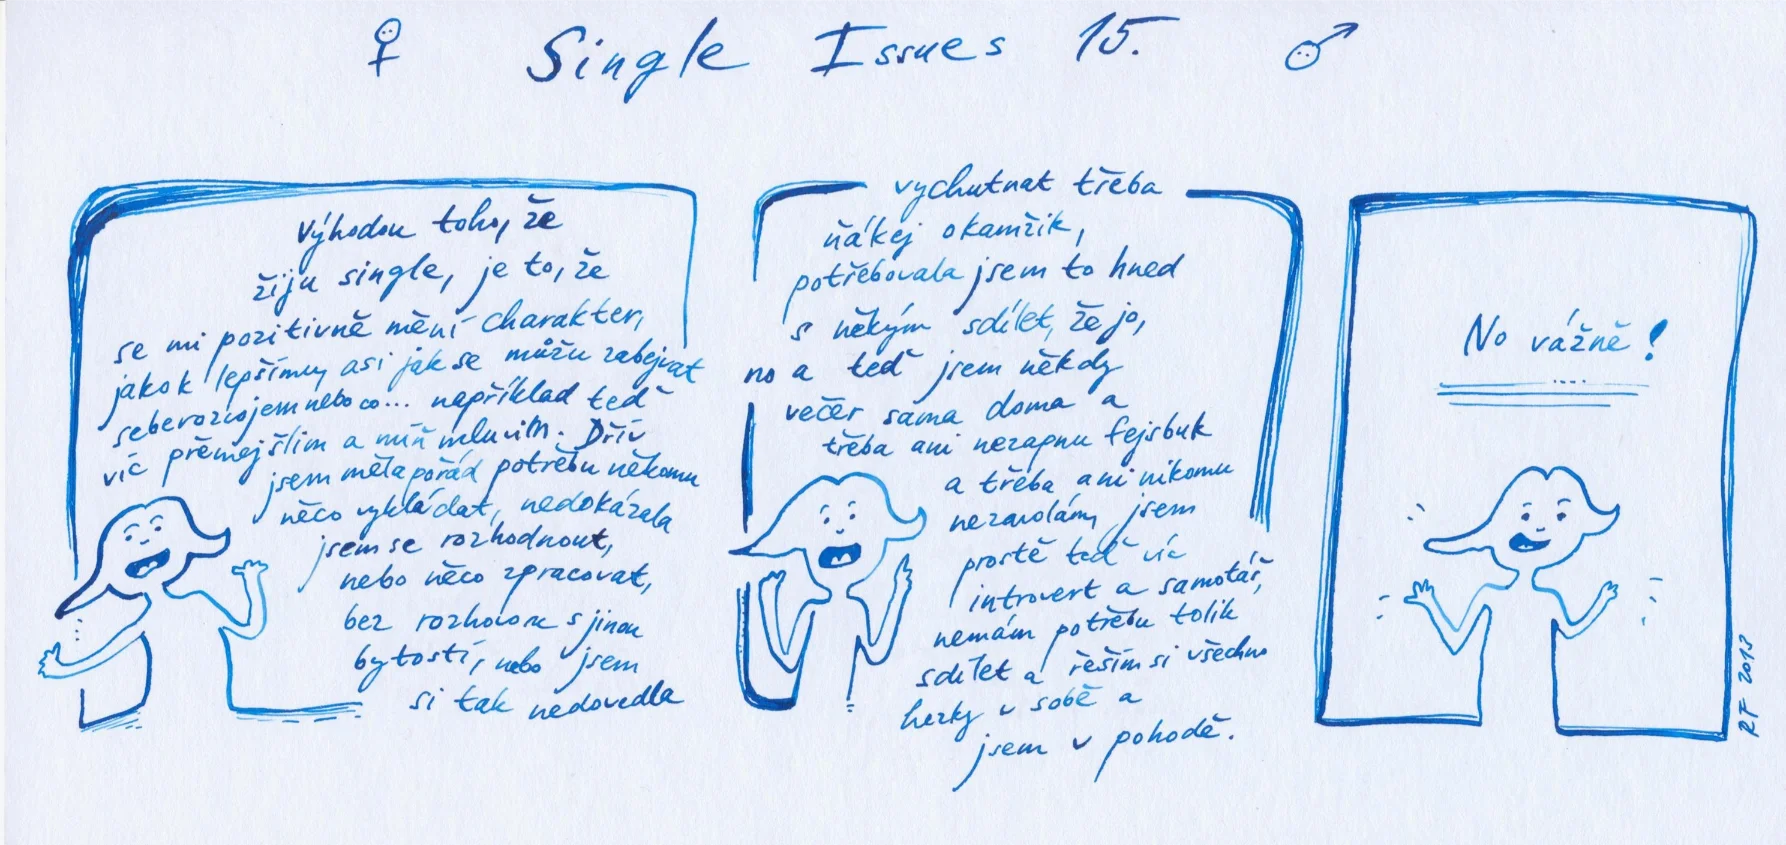 Single Issues 15.
Výhodou toho, že
žiju single, je to, že
se mi pozitivně mění charakter,
jako k lepšímu, asi jak se můžu zabejvat
seberozvojem nebo co... například teď
víc přemejšlim a míň mluvim. Dřív
jsem měla pořád potřebu někomu
něco vykládat, nedokázala
jsem se rozhodnout,
nebo něco zpracovat,
bez rozhovoru s jinou
bytostí, nebo jsem
si tak nedovedla
vychutnat třeba
ňákej okamžik,
potřebovala jsem to hned
s někým sdílet, že jo,
no a teď jsem někdy
večer sama doma a
třeba ani nezapnu fejsbuk
a třeba ani nikomu
nezavolám, jsem
prostě teď víc
introvert a samotář,
nemám potřebu tolik
sdílet a řešim si všechno
hezky v sobě a
jsem v pohodě.
No vážně!
RF 2013